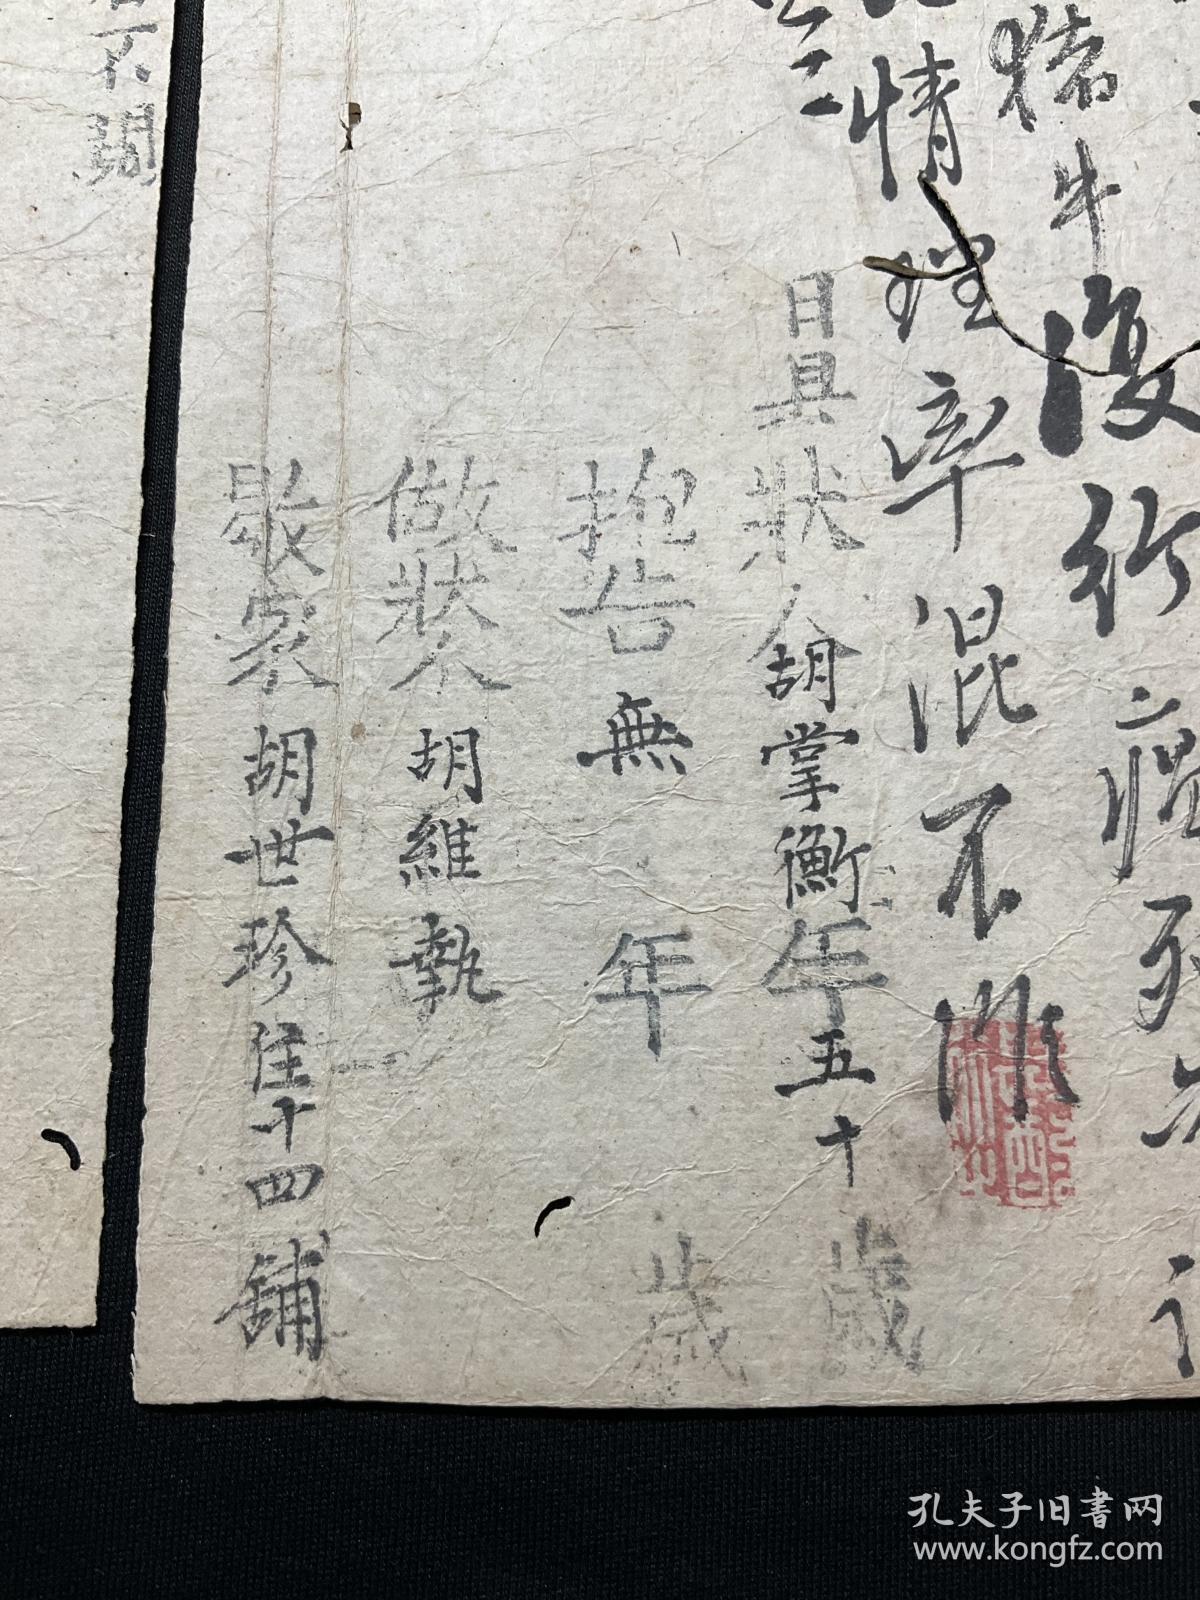 猪牛復行瘟死
情理率混不准
日具狀人胡掌衡年五十歲
抱告無年歲
做狀人胡維執
歇家胡世珍住十四舖
不問
孔夫子旧書网
www.kongfz.com